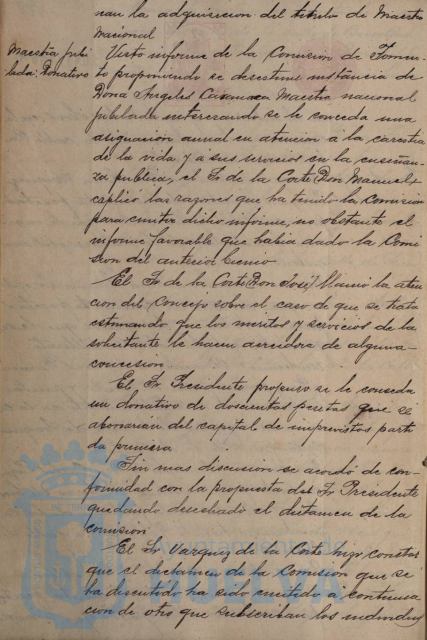 nan la adquisicion del titulo de Maestro
Nacional
Maestra jubi
lada: Donativo
Visto informe de la Comision de Fomen-
to proponiendo se desestime instancia de
Doña Angeles Maestra nacional
jubilada interezando se le conceda una
asignacion annual en atencion á la carestia
de la vida y a sus servicios en la enseñan-
za publica, el Sr de la Corte (Don Manuel)
esplicó las razones que ha tenido la Comision
para emitir dicho informe, no obstante el
informe favorable que habia dado la Comi
sion del anterior bienio
El Sr de la Corte (Don José) llamó la aten
cion del Concejo sobre el caso de que se trata
estimando que los meritos y servicios de la
solicitante le hacen acredora de alguna
concesion
El Sr Presidente propuso se le conceda
un donativo de doscientas pesetas que se
abonarian del capitulo de imprevistos parti
da primera
Sin mas discusion se acordó de con-
formidad con la propuesta del Sr Presidente
quedando desechado el dictamen de la
comision
El Sr Vazquez de la Corte hizo constar
que el dictamen de la Comision que se
ha discutido ha sido emitido a continua
cion de otro que subscriban los individuos